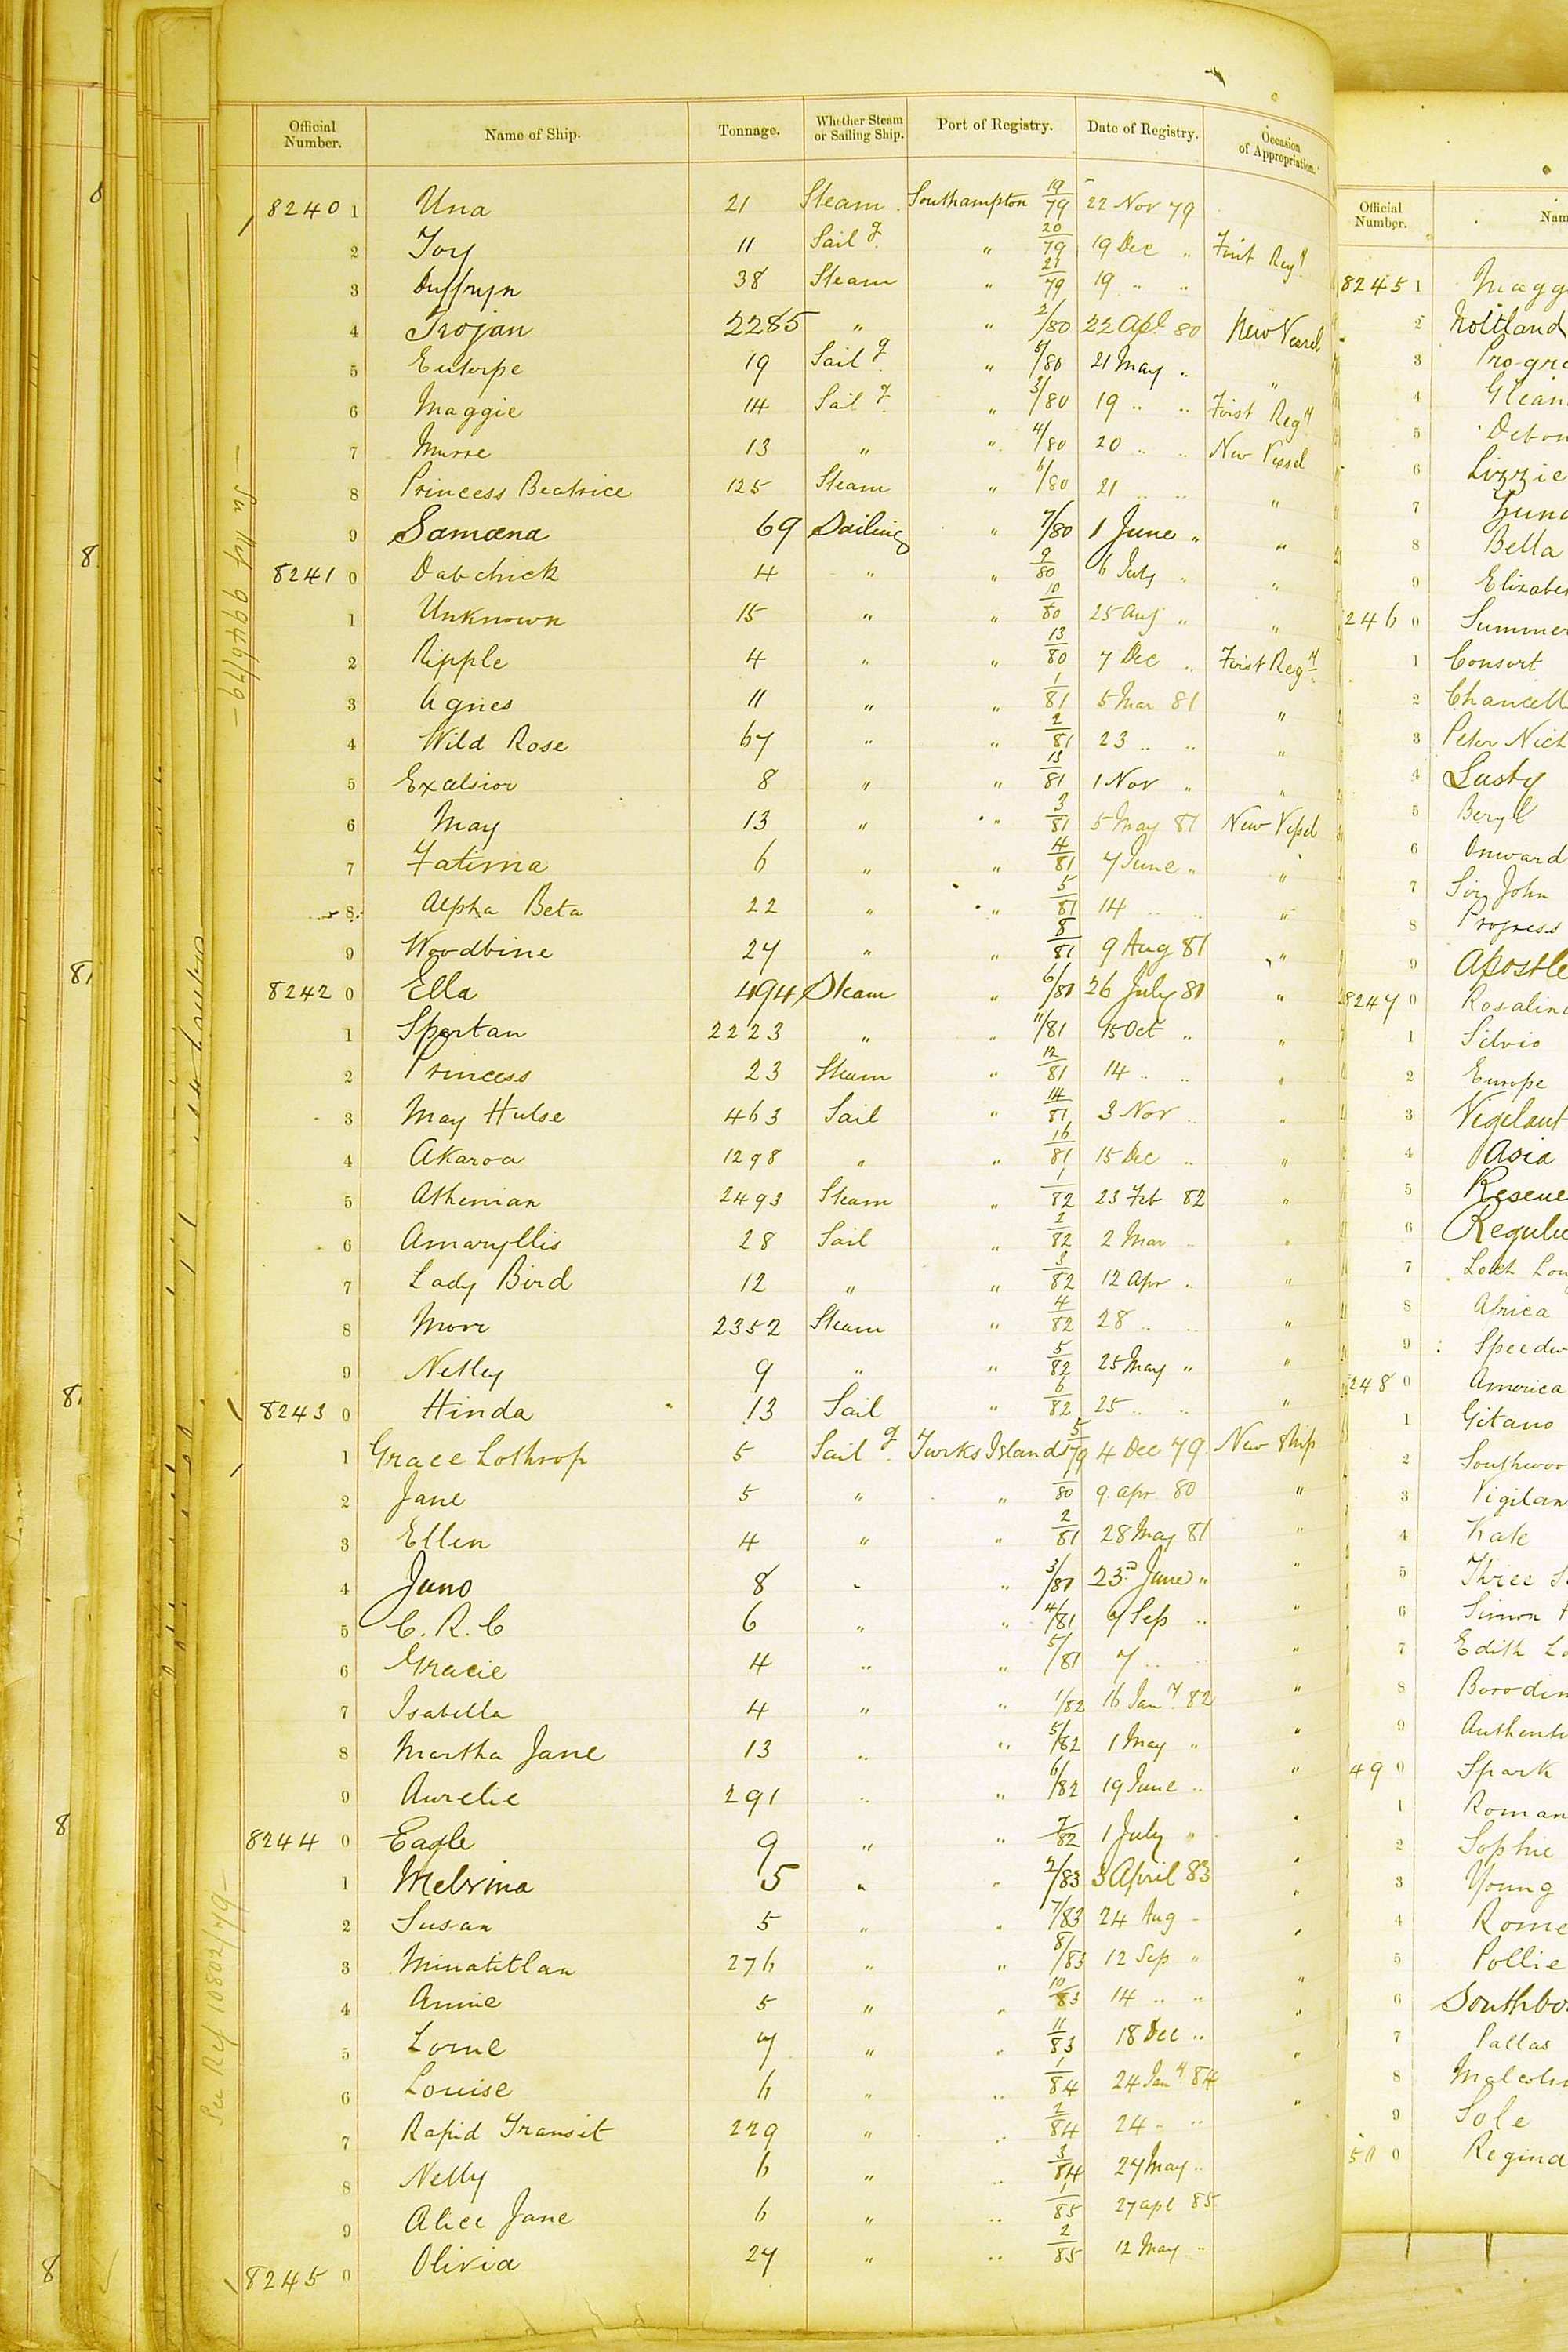 Official Number. Name of Ship. Tonnage. Whether Steam or Sailing Ship. Port of Registry. Date of Registry. Occasion of Appropriation.
8240 1 Una 21 Steam Southampton 19/79 22 Nov 79
2 Joy 11 Sailg " 20/79 19 Dec " First Regy
3 Duffryn 38 Steam " 21/79 19 " "
4 Trojan 2285 " " 2/80 22 Apl 80 New Vessel
5 Euterpe 19 Sailg " 5/80 21 May " "
6 Maggie 14 Sailg " 3/80 19 " " First Regy
7 13 " " 4/80 20 " " New Vessel
8 Princess Beatrice 125 Steam " 6/80 21 " " "
9 Samæna 69 Sailing " 7/80 1 June " "
8241 0 Dabchick 4 " " 9/80 6 July " "
1 Unknown 15 " " 10/80 25 Aug " "
2 Ripple 4 " " 13/80 7 Dec " First Regy
3 Agnes 11 " " 1/81 5 Mar 81 "
4 Wild Rose 67 " " 2/81 23 " " "
5 Excelsior 8 " " 13/81 1 Nov " "
6 May 13 " " 3/81 5 May 81 New Vessel
7 Fatima 6 " " 4/81 7 June " "
8 Alpha Beta 22 " " 5/81 14 " " "
9 Woodbine 24 " " 8/81 9 Aug 81 "
8242 0 Ella 494 Steam " 6/81 26 July 81 "
1 Spartan 2223 " " 11/81 15 Oct " "
2 Princess 23 Steam " 12/81 14 " " "
3 May Hulse 463 Sail " 14/81 3 Nov " "
4 Akaroa 1298 " " 16/81 15 Dec " "
5 Athenian 2493 Steam " 1/82 23 Feb 82 "
6 Amaryllis 28 Sail " 2/82 2 Mar " "
7 Lady Bird 12 " " 3/82 12 Apr " "
8 Moor 2352 Steam " 4/82 28 " " "
9 Netley 9 " " 5/82 25 May " "
8243 0 Hinda 13 Sail " 6/82 25 " " "
1 Grace Lothrop 5 Sailg Turks Islands 5/79 4 Dec 79 New Ship
2 Jane 5 " " 1/80 9 Apr 80 "
3 Ellen 4 " " 2/81 28 May 81 "
4 Juno 8 " " 3/81 23rd June " "
5 C. R. C 6 " " 4/81 7 Sep " "
6 Gracie 4 " " 5/81 7 " " "
7 Isabella 4 " " 1/82 16 Jany 82 "
8 Martha Jane 13 " " 5/82 1 May " "
9 Aurelie 291 " " 6/82 19 June " "
8244 0 Eagle 9 " " 7/82 1 July " "
1 Melvina 5 " " 2/83 3 April 83 "
2 Susan 5 " " 7/83 24 Aug " "
3 Minatitlan 276 " " 8/83 12 Sep " "
4 Annie 5 " " 10/83 14 " " "
5 Lorne 7 " " 11/83 18 Dec " "
6 Louise 6 " " 1/84 24 Jany 84 "
7 Rapid Transit 229 " " 2/84 24 " "
8 Nelly 6 " " 3/84 27 May "
9 Alice Jane 6 " " 1/85 27 Apl 85
8245 0 Olivia 24 " " 2/85 12 May "
See Ref 9946/79
See Ref 10802/79
Official Number. Nam
8245 1 Magg
2 Noltland
3 Progre
4 Glean
5 Debon
6 Lizzie
7
8 Bella
9 Elizabe
246 0 Summer
1 Consort
2 Chancell
3 Peter Nich
4 Lusty
5 Beryl
6 Onward
7 Sir John
8 Progress
9 Apostle
8247 0 Rosalin
1 Silvio
2 Europe
3 Vigilant
4 Asia
5 Rescue
6 Regulu
7 Loch Lo
8 Africa
9 Speedw
248 0 America
1 Gitano
2 Southwoo
3 Vigilan
4 Kate
5 Three S
6 Simon
7 Edith L
8 Borodin
9 Authenti
49 0 Spark
1 Roman
2 Sophie
3 Young
4 Rome
5 Pollie
6 Southbo
7 Pallas
8 Malcolm
9 Sole
50 0 Regina